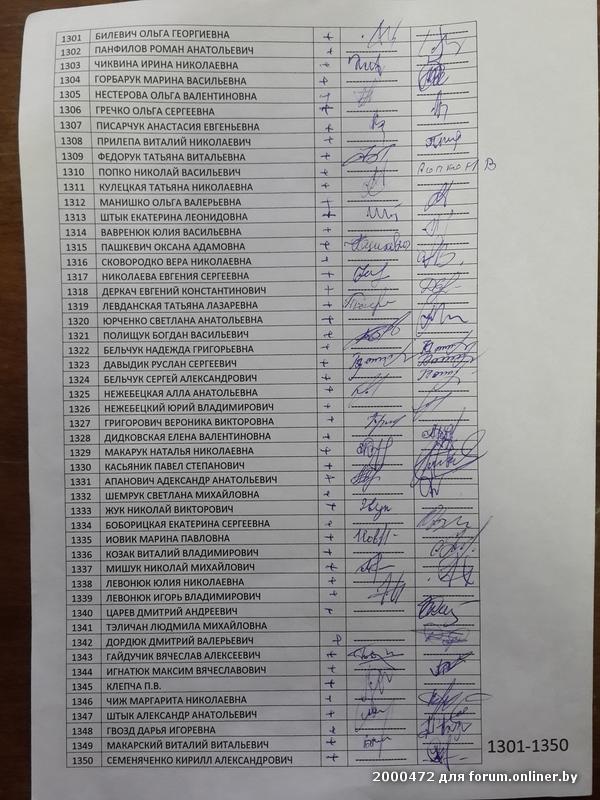 1301 БИЛЕВИЧ ОЛЬГА ГЕОРГИЕВНА +
1302 ПАНФИЛОВ РОМАН АНАТОЛЬЕВИЧ +
1303 ЧИКВИНА ИРИНА НИКОЛАЕВНА +
1304 ГОРБАРУК МАРИНА ВАСИЛЬЕВНА +
1305 НЕСТЕРОВА ОЛЬГА ВАЛЕНТИНОВНА +
1306 ГРЕЧКО ОЛЬГА СЕРГЕЕВНА +
1307 ПИСАРЧУК АНАСТАСИЯ ЕВГЕНЬЕВНА +
1308 ПРИЛЕПА ВИТАЛИЙ НИКОЛАЕВИЧ +
1309 ФЕДОРУК ТАТЬЯНА ВИТАЛЬЕВНА +
1310 ПОПКО НИКОЛАЙ ВАСИЛЬЕВИЧ + Попко Н В
1311 КУЛЕЦКАЯ ТАТЬЯНА НИКОЛАЕВНА +
1312 МАНИШКО ОЛЬГА ВАЛЕРЬЕВНА +
1313 ШТЫК ЕКАТЕРИНА ЛЕОНИДОВНА +
1314 ВАВРЕНЮК ЮЛИЯ ВАСИЛЬЕВНА +
1315 ПАШКЕВИЧ ОКСАНА АДАМОВНА +
1316 СКОВОРОДКО ВЕРА НИКОЛАЕВНА +
1317 НИКОЛАЕВА ЕВГЕНИЯ СЕРГЕЕВНА +
1318 ДЕРКАЧ ЕВГЕНИЙ КОНСТАНТИНОВИЧ +
1319 ЛЕВДАНСКАЯ ТАТЬЯНА ЛАЗАРЕВНА +
1320 ЮРЧЕНКО СВЕТЛАНА АНАТОЛЬЕВНА +
1321 ПОЛИЩУК БОГДАН ВАСИЛЬЕВИЧ +
1322 БЕЛЬЧУК НАДЕЖДА ГРИГОРЬЕВНА +
1323 ДАВЫДИК РУСЛАН СЕРГЕЕВИЧ +
1324 БЕЛЬЧУК СЕРГЕЙ АЛЕКСАНДРОВИЧ +
1325 НЕЖЕБЕЦКАЯ АЛЛА АНАТОЛЬЕВНА +
1326 НЕЖЕБЕЦКИЙ ЮРИЙ ВЛАДИМИРОВИЧ +
1327 ГРИГОРОВИЧ ВЕРОНИКА ВИКТОРОВНА +
1328 ДИДКОВСКАЯ ЕЛЕНА ВАЛЕНТИНОВНА +
1329 МАКАРУК НАТАЛЬЯ НИКОЛАЕВНА +
1330 КАСЬЯНИК ПАВЕЛ СТЕПАНОВИЧ +
1331 АПАНОВИЧ АДЕКСАНДР АНАТОЛЬЕВИЧ +
1332 ШЕМРУК СВЕТЛАНА МИХАЙЛОВНА +
1333 ЖУК НИКОЛАЙ ВИКТОРОВИЧ +
1334 БОБОРИЦКАЯ ЕКАТЕРИНА СЕРГЕЕВНА +
1335 ИОВИК МАРИНА ПАВЛОВНА +
1336 КОЗАК ВИТАЛИЙ ВЛАДИМИРОВИЧ +
1337 МИШУК НИКОЛАЙ МИХАЙЛОВИЧ +
1338 ЛЕВОНЮК ЮЛИЯ НИКОЛАЕВНА +
1339 ЛЕВОНЮК ИГОРЬ ВЛАДИМИРОВИЧ +
1340 ЦАРЕВ ДМИТРИЙ АНДРЕЕВИЧ +
1341 ТЭЛИЧАН ЛЮДМИЛА МИХАЙЛОВНА
1342 ДОРДЮК ДМИТРИЙ ВАЛЕРЬЕВИЧ +
1343 ГАЙДУЧИК ВЯЧЕСЛАВ АЛЕКСЕЕВИЧ +
1344 ИГНАТЮК МАКСИМ ВЯЧЕСЛАВОВИЧ +
1345 КЛЕПЧА П.В. +
1346 ЧИЖ МАРГАРИТА НИКОЛАЕВНА +
1347 ШТЫК АЛЕКСАНДР АНАТОЛЬЕВИЧ +
1348 ГВОЗД ДАРЬЯ ИГОРЕВНА +
1349 МАКАРСКИЙ ВИТАЛИЙ ВИТАЛЬЕВИЧ +
1350 СЕМЕНЯЧЕНКО КИРИЛЛ АЛЕКСАНДРОВИЧ +
1301-1350
2000472 для forum.onliner.by